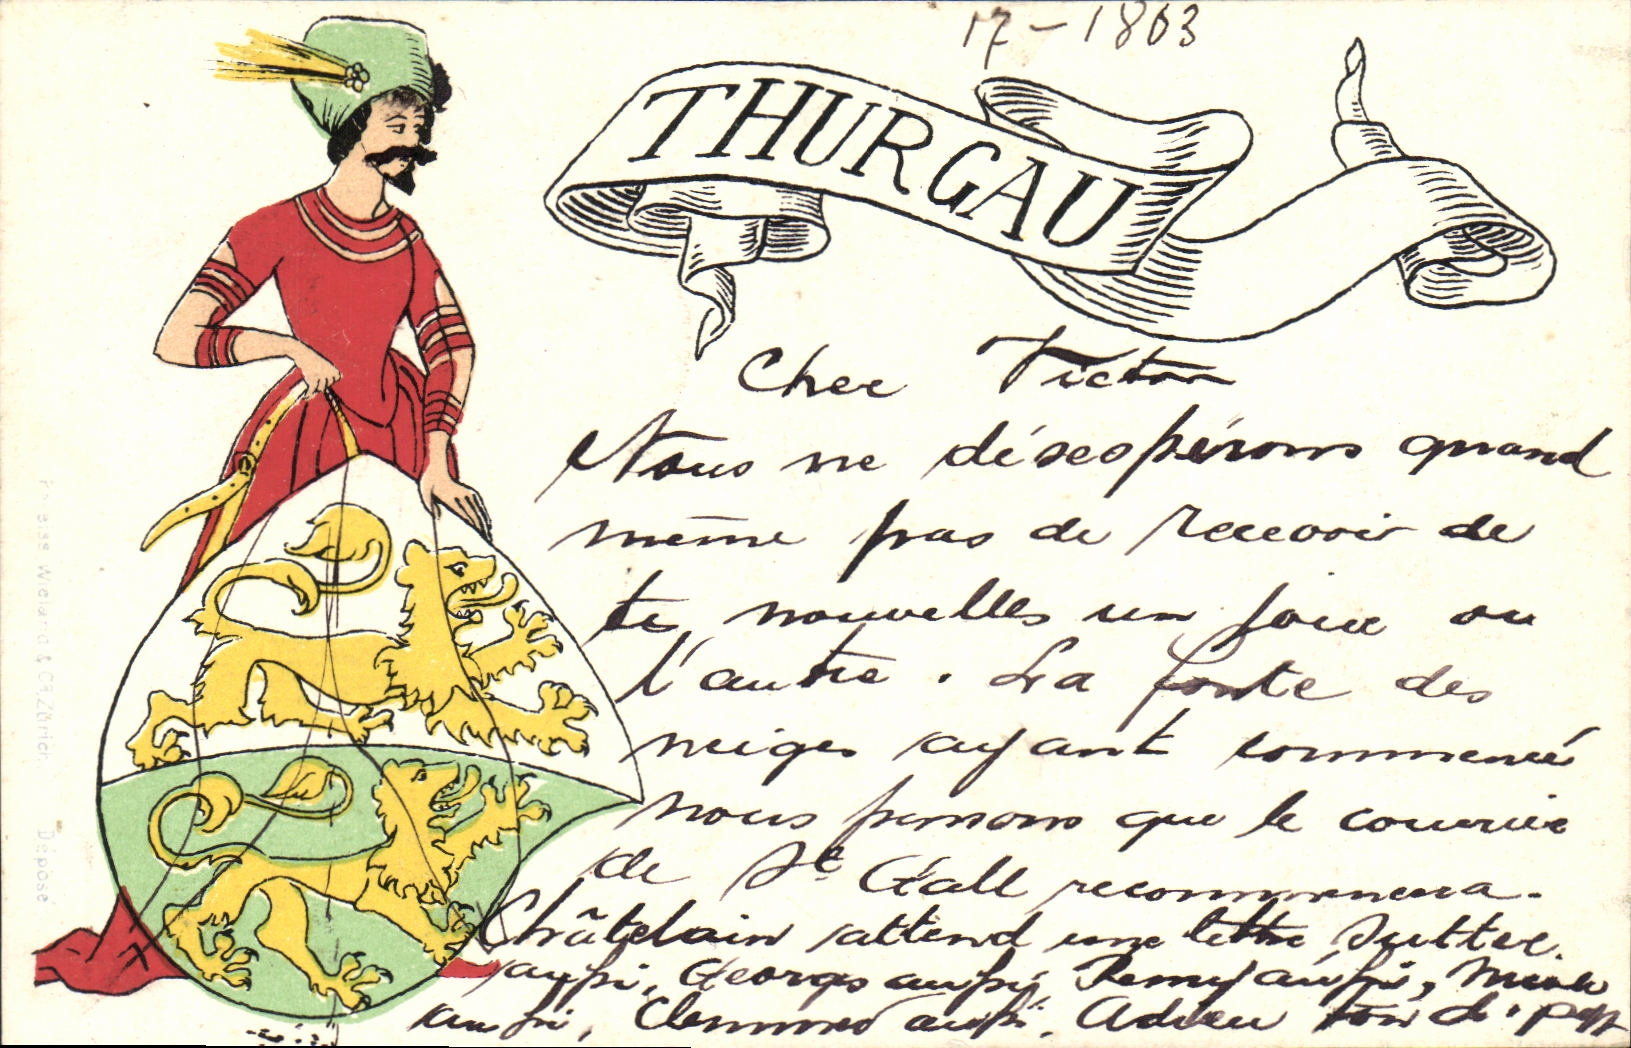 17 - 1863
THURGAU
Cher Victor
Nous ne désespérons quand
même pas de recevoir de
tes nouvelles un jour ou
l'autre. La fonte des
neiges ayant commencé
nous pensons que le courrier
de St Gall recommencera.
Châtelain attend une lettre Sutter
aussi, Georges aussi, Remy aussi,
aussi, aussi. Adieu
Wieland & Co, Zürich. Déposé